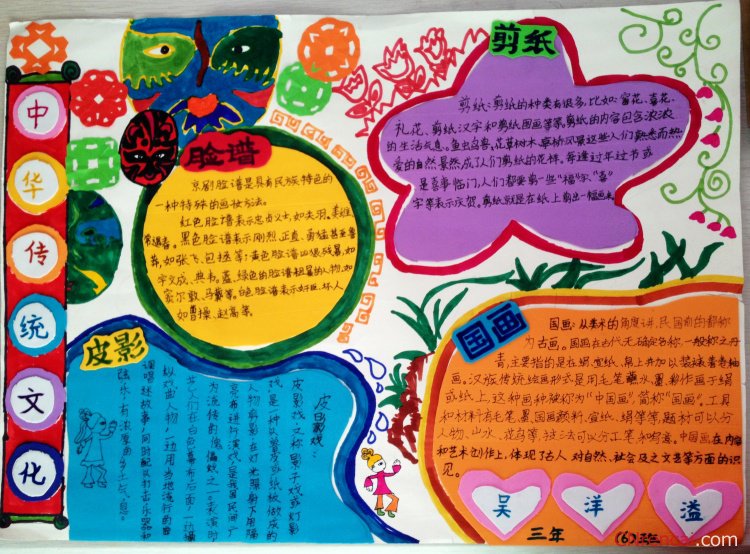 中
华
传
统
文
化
脸谱
京剧脸谱是具有民族特色的
一种特殊的画妆方法。
红色脸谱表示忠贞义士,如关羽、姜维
常遇春。黑色脸谱表示刚烈、正直、勇猛甚至鲁
莽,如张飞、包拯等;黄色脸谱凶狠残暴,如
宇文成、典韦。蓝、绿色的脸谱粗暴的人物,如
窦尔敦、马武等。白色脸谱表示奸臣、坏人,
如曹操、赵高等。
剪纸
剪纸:剪纸的种类有很多,比如:窗花、喜花、
礼花、剪纸汉字和剪纸国画等。剪纸的内容包含浓浓
的生活气息,鱼虫鸟兽、花草树木、亭桥风景这些人们熟悉而热
爱的自然景然成了人们剪纸的花样。每逢过年过节或
是喜事临门,人们都要剪一些“福”字、“喜”
字等表示庆贺。剪纸就是在纸上剪出一幅画来
皮影
皮影戏:
皮影戏,又称“影子戏”或“灯影
戏”,是一种以兽皮或纸板做成的
人物剪影,在灯光照射下用隔
亮布进行演戏,是我国民间广
为流传的傀儡戏之一。表演时
艺人们在白色幕布后面,一边操
纵戏曲人物,一边用当地流行的曲
调唱述故事,同时配以打击乐器和
弦乐,有浓厚的乡土气息。
国画
国画:从美术的角度讲,民国前的都称
为古画。国画在古代无确定名称,一般称之丹
青,主要指的是在绢、宣纸、帛上并加以装裱的卷轴
画。汉族传统绘画形式是用毛笔蘸水、墨、彩作画于绢
或纸上,这种画种被称为“中国画”,简称“国画”。工具
和材料有毛笔、墨、国画颜料、宣纸、绢等等,题材可以分
人物、山水、花鸟等,技法可以分工笔和写意。中国画在内容
和艺术创作上,体现了古人对自然、社会及之文艺等方面的认
识。
吴
洋
溢
三年
(6)班
.com